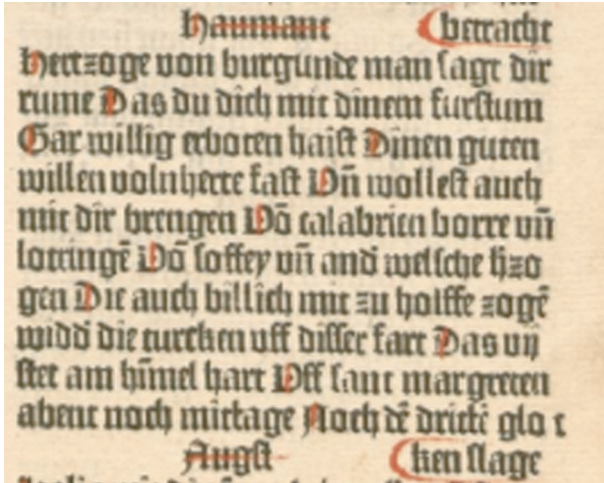 Haumant betracht
Hertzoge von burgunde man sagt dir
rume Das du dich mit dinem furstum
Gar willig erboten haist Dinen guten
willen volnherte fast Un̄ wollest auch
mit dir brengen Vō calabrien borre vn̄
lottingē Vō soffey vn̄ and welsche h̄zo
gen Die auch billich mit zu holffe zogē
widd die turcken uff disser fart Das vij
stet am hīmel hart Uff sant margreten
abent noch mittage Noch dē dritte glo c
Augst ken slage